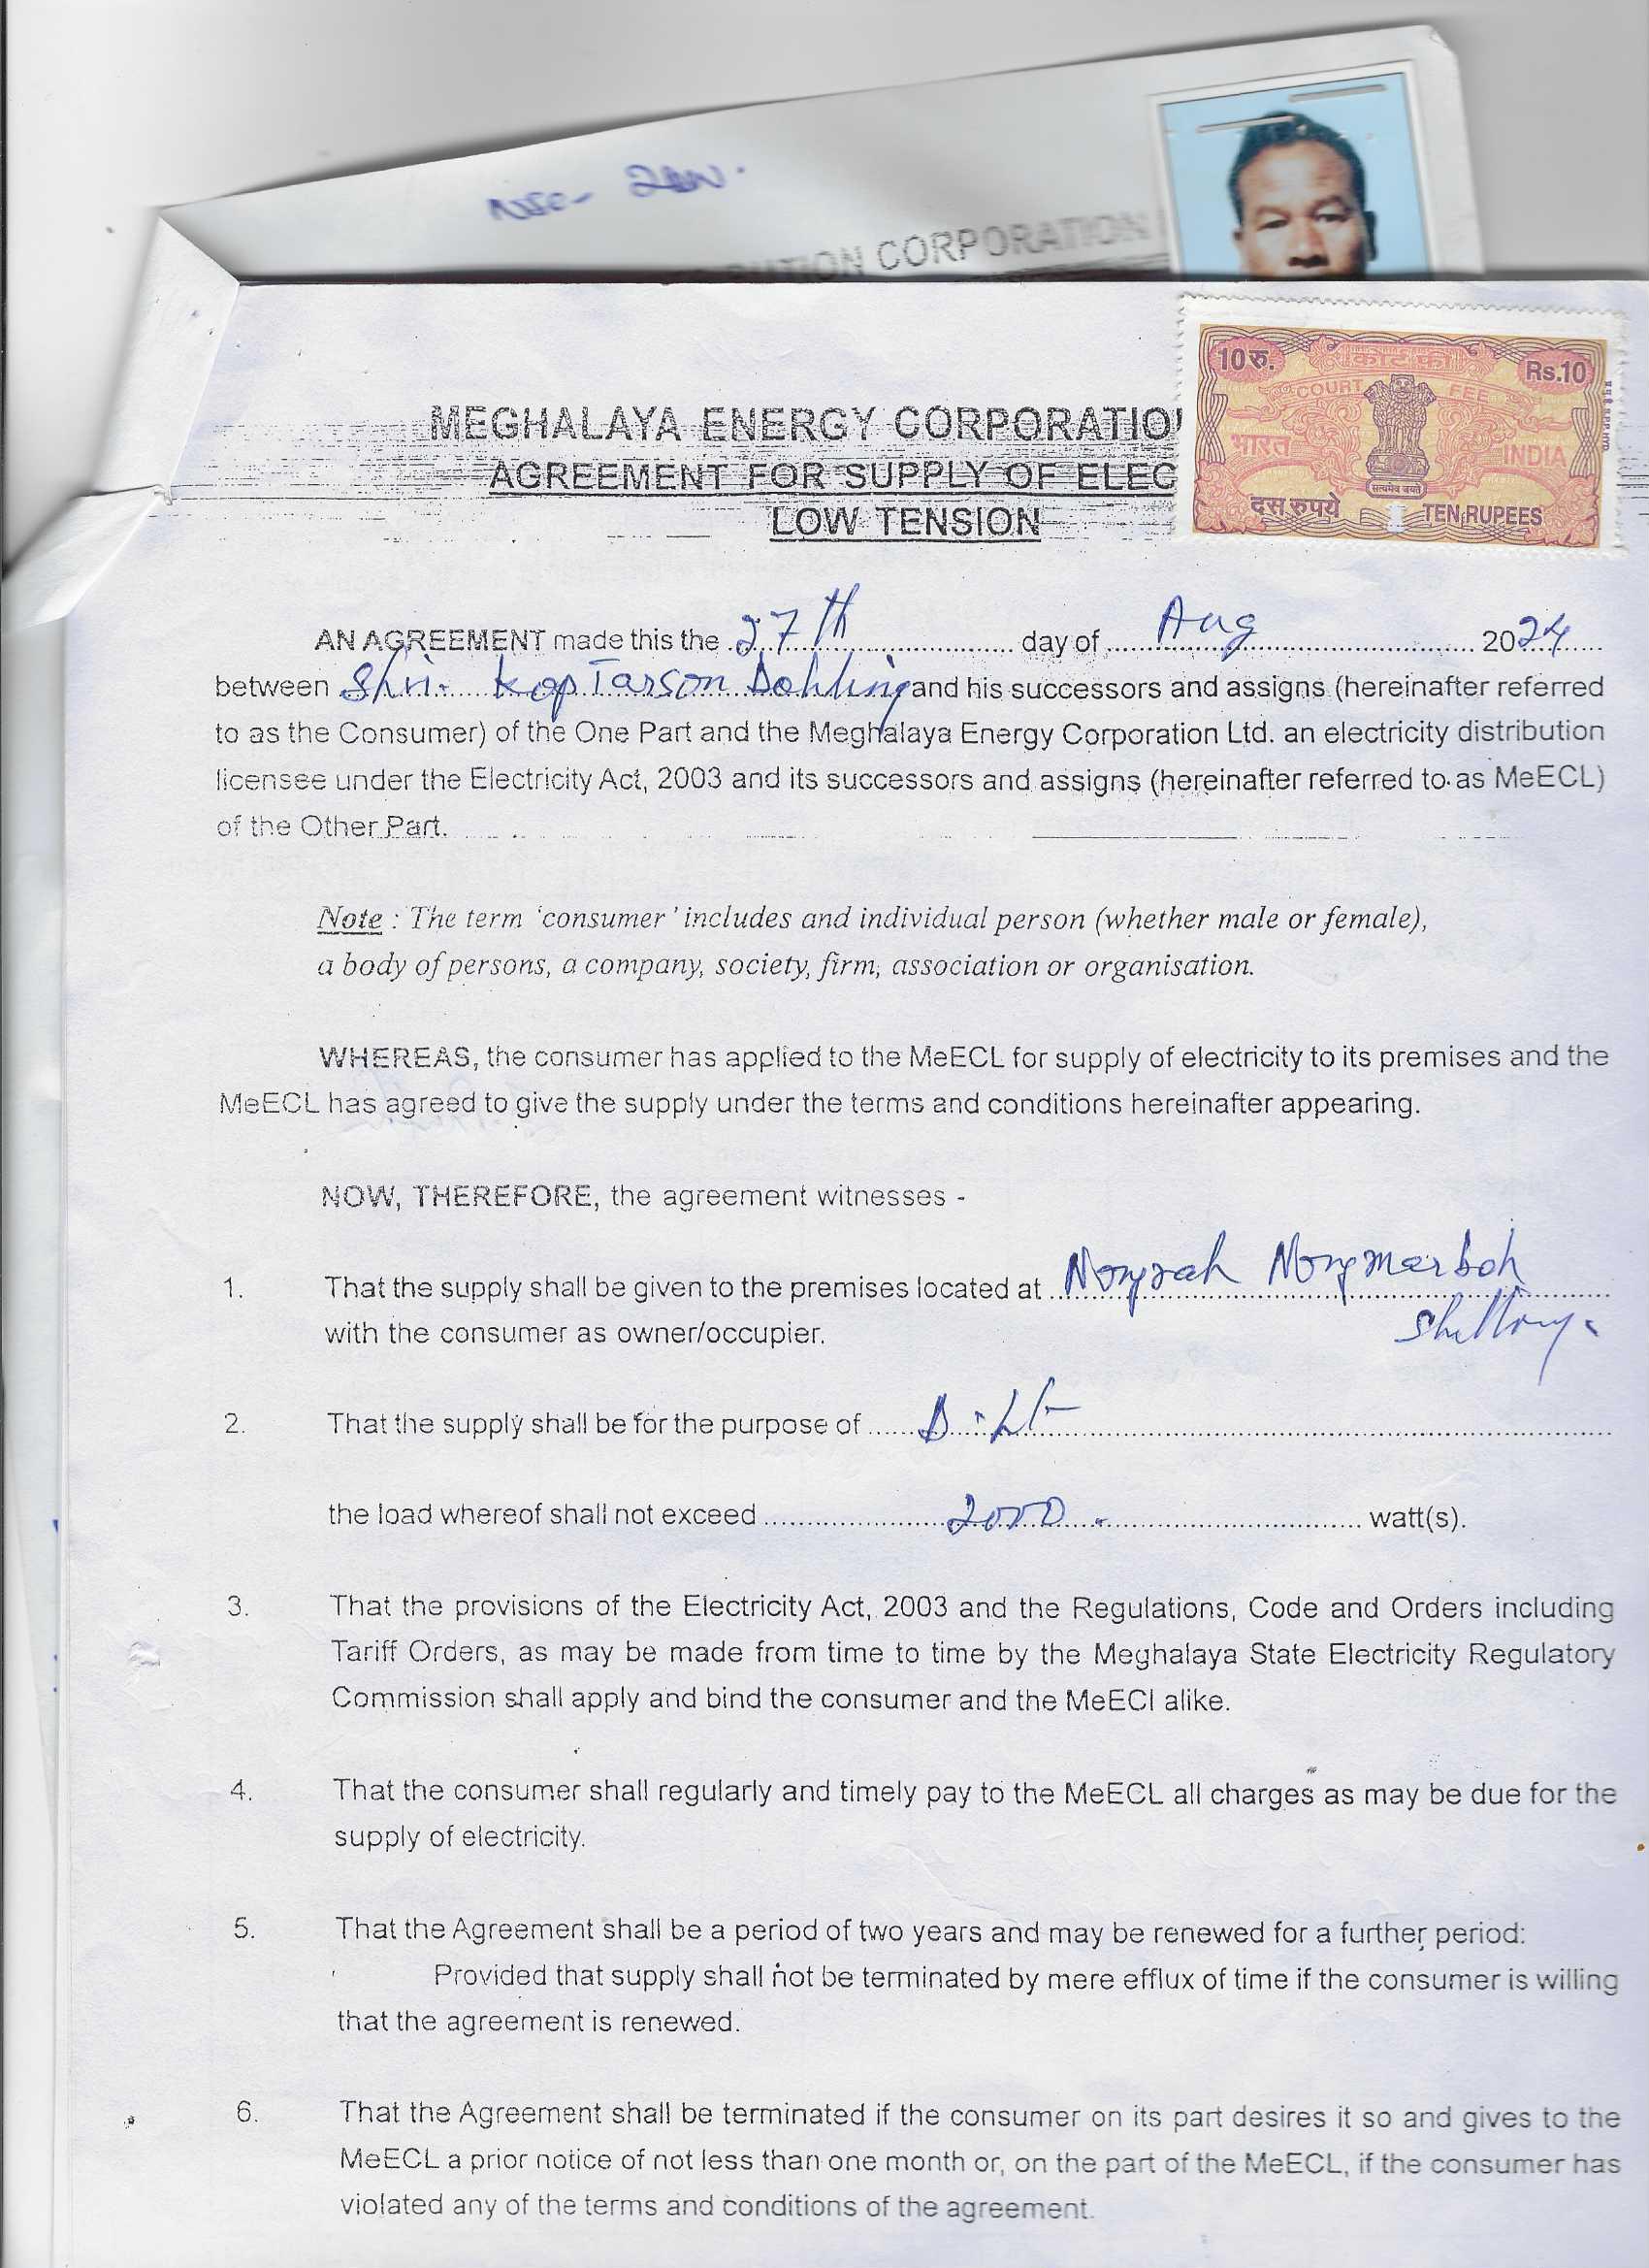 2kw.
BUTION CORPORATION
10रु. Rs.10
COURT FEE
भारत INDIA
सत्यमेव जयते
दस रुपये TEN RUPEES
MEGHALAYA ENERGY CORPORATIO
AGREEMENT FOR SUPPLY OF ELEC
LOW TENSION
AN AGREEMENT made this the 27th day of Aug 2024
between Shri. KopTarson Dohling and his successors and assigns (hereinafter referred
to as the Consumer) of the One Part and the Meghalaya Energy Corporation Ltd. an electricity distribution
licensee under the Electricity Act, 2003 and its successors and assigns (hereinafter referred to as MeECL)
of the Other Part.
Note : The term 'consumer' includes and individual person (whether male or female),
a body of persons, a company, society, firm, association or organisation.
WHEREAS, the consumer has applied to the MeECL for supply of electricity to its premises and the
MeECL has agreed to give the supply under the terms and conditions hereinafter appearing.
NOW, THEREFORE, the agreement witnesses -
1. That the supply shall be given to the premises located at Nongrah Nongmarboh
with the consumer as owner/occupier. Shillong.
2. That the supply shall be for the purpose of
the load whereof shall not exceed 2000. watt(s).
3. That the provisions of the Electricity Act, 2003 and the Regulations, Code and Orders including
Tariff Orders, as may be made from time to time by the Meghalaya State Electricity Regulatory
Commission shall apply and bind the consumer and the MeECl alike.
4. That the consumer shall regularly and timely pay to the MeECL all charges as may be due for the
supply of electricity.
5. That the Agreement shall be a period of two years and may be renewed for a further period:
Provided that supply shall not be terminated by mere efflux of time if the consumer is willing
that the agreement is renewed.
6. That the Agreement shall be terminated if the consumer on its part desires it so and gives to the
MeECL a prior notice of not less than one month or, on the part of the MeECL, if the consumer has
violated any of the terms and conditions of the agreement.